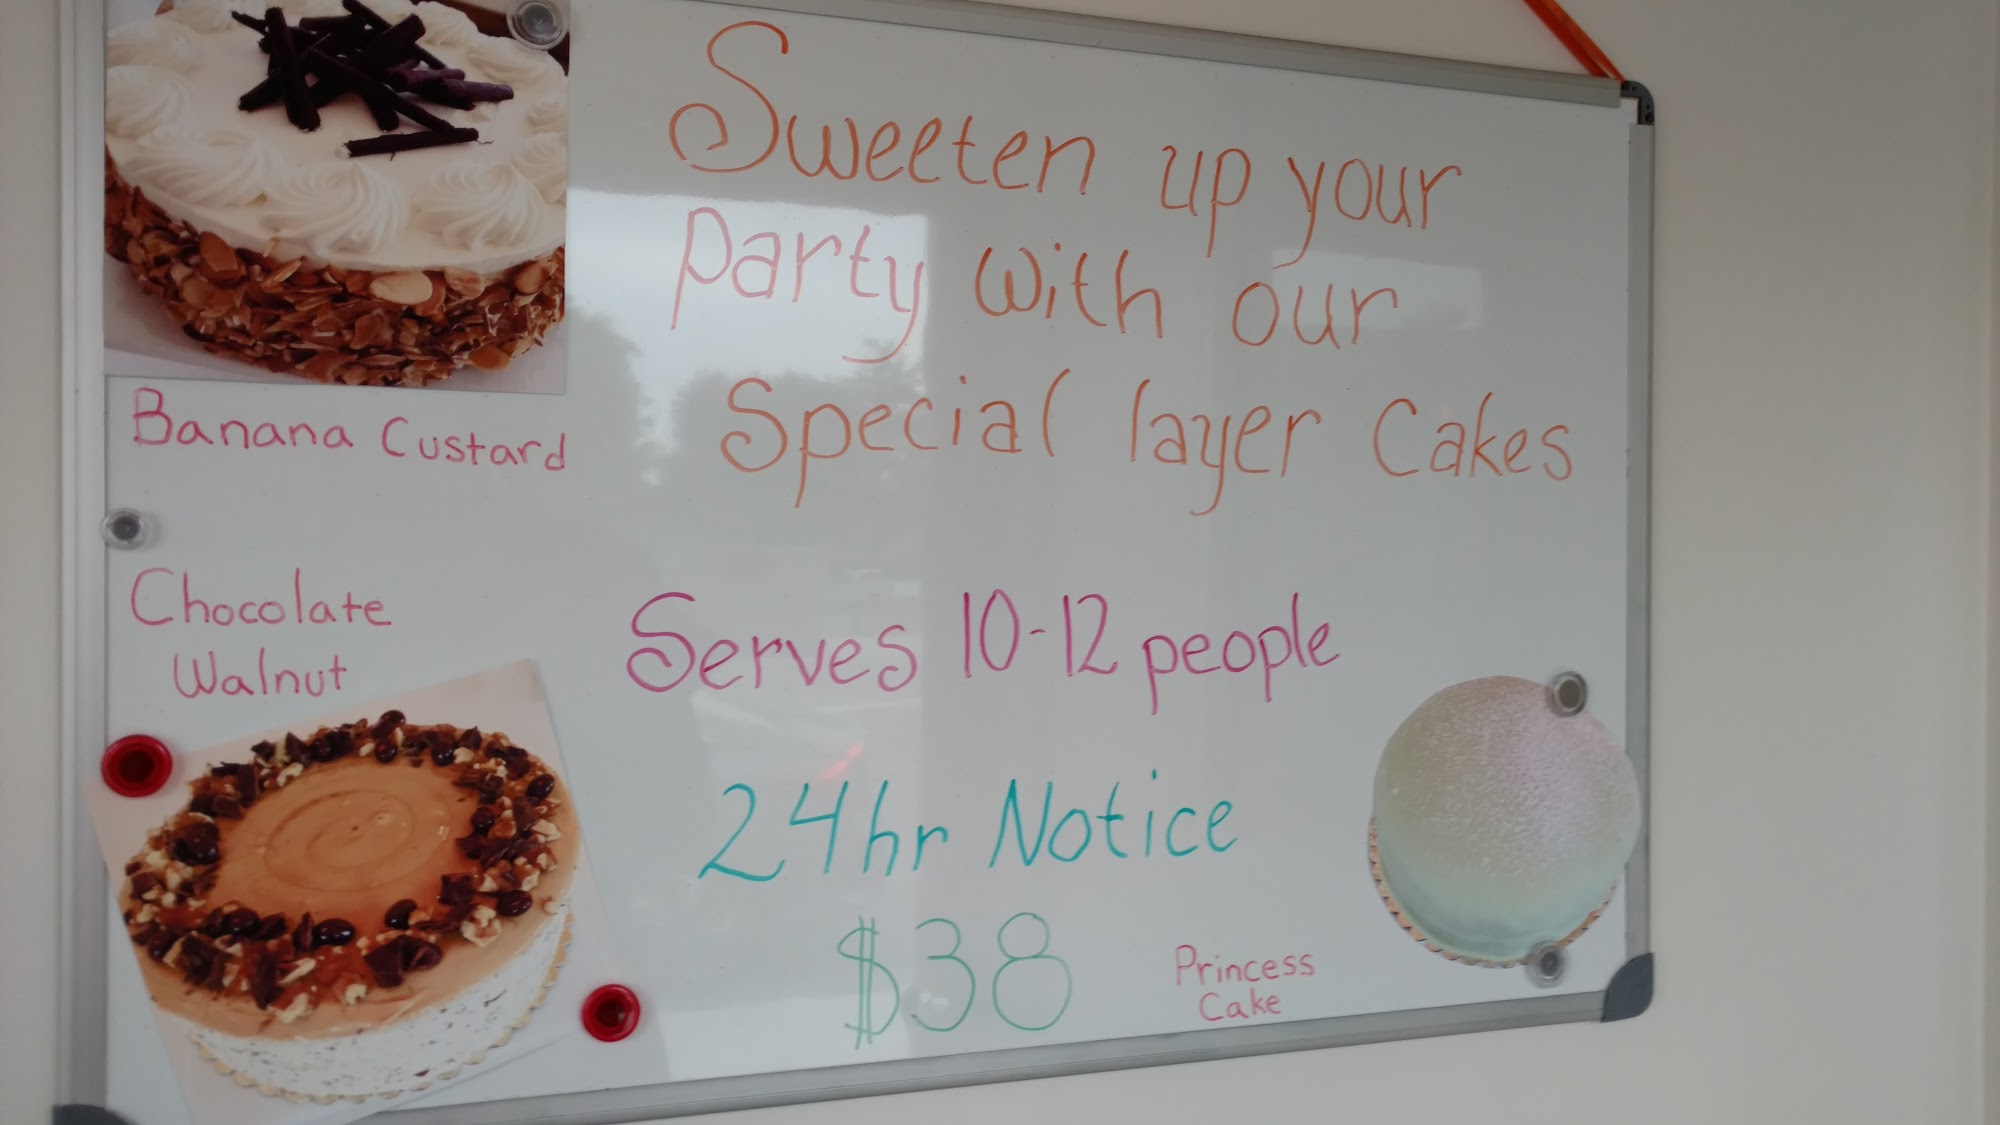 Sweeten up your
party with our
Special layer Cakes
Banana Custard
Chocolate
Walnut
Serves 10-12 people
24hr Notice
$38
Princess
Cake